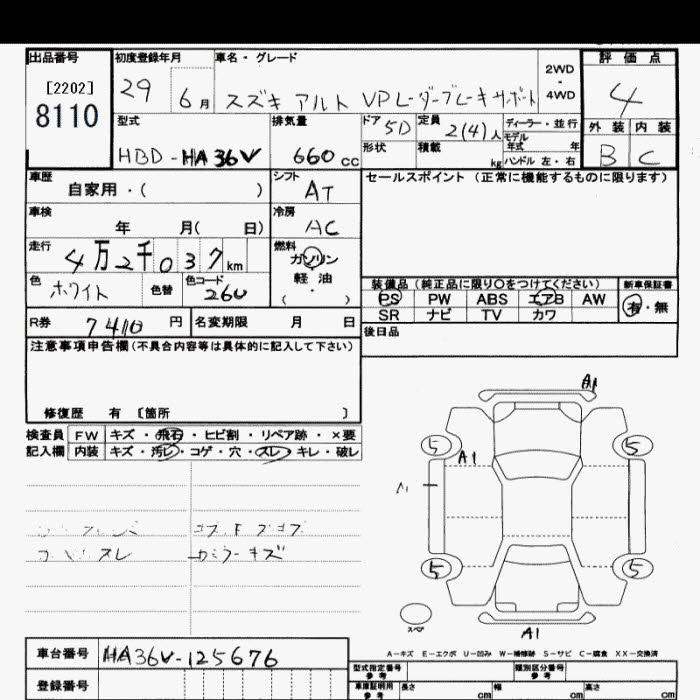 出品番号 初度登録年月 車名・グレード 評価点
[2202] 8110 29 6月 スズキ アルト VPレーダーブレーキサポート 2WD・4WD 4
型式 排気量 ドア 5D 定員 2(4)人 ディーラー・並行 外装 内装
HBD-HA36V 660cc 形状 積載 kg モデル年式 年 ハンドル 左・右 B C
車歴 シフト セールスポイント (正常に機能するものに限ります)
自家用・( ) AT
車検 冷房
年 月( 日) AC
走行 燃料
4万2千037km ガソリン
色 色替 色コード 軽油 装備品 (純正品に限り〇をつけてください) 新車保証書
ホワイト 260 ( ・ ) PS PW ABS エアB AW 有・無
SR ナビ TV カワ
R券 7410円 名変期限 月 日 後日品
注意事項申告欄(不具合内容等は具体的に記入して下さい)
修復歴 有 〔箇所 〕
A1
検査員 FW キズ・飛石・ヒビ割・リペア跡・×要
記入欄 内装 キズ・汚レ・コゲ・穴・スレ・キレ・破レ
5 5
A1
スレ カラーキズ
5 5
スペア
A1
A-キズ E-エクボ U-凹み W-補修跡 S-サビ C-腐食 XX-交換済
車台番号 HA36V-125676
型式指定番号 参考 類別区分番号 参考
登録番号 車庫証明用 参考 長さ cm 幅 cm 高さ cm